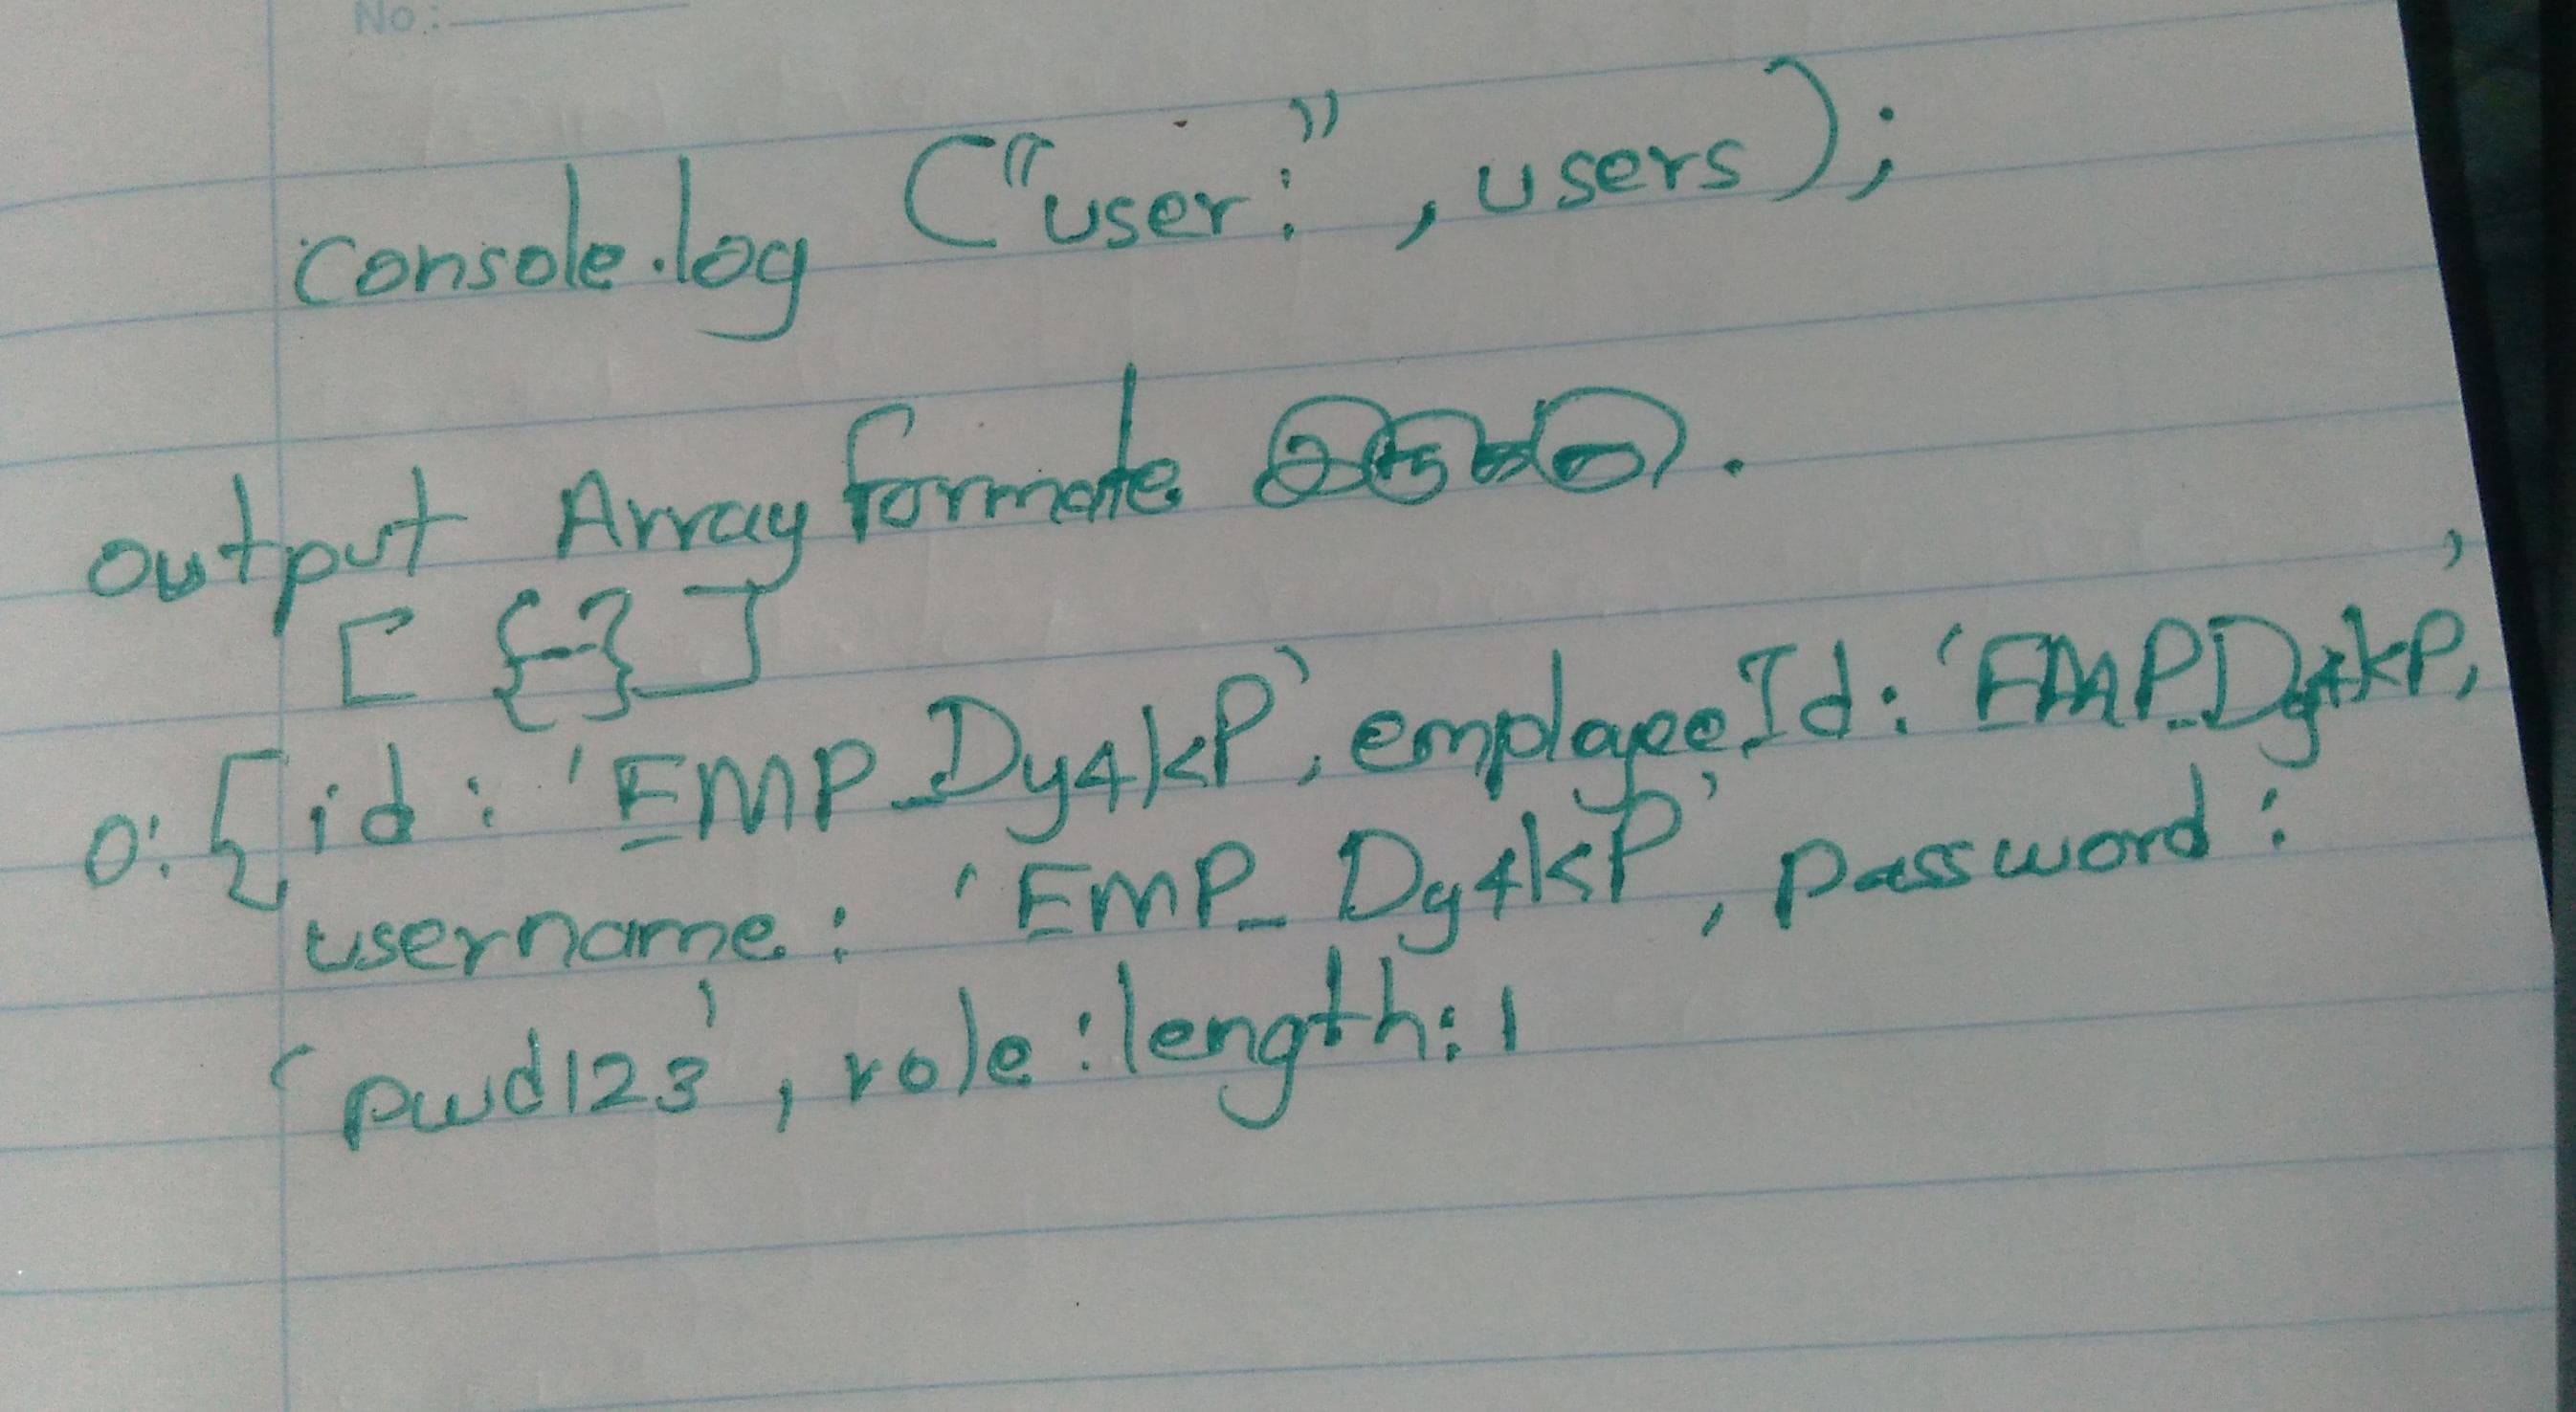 No:
console.log ("user:", users);
output Array formate .
[ {--} ]
0: {id: 'EMP_Dy4kP', employeeId: 'EMP_Dy4kP',
username: 'EMP_Dy4kP', password:
'pwd123', role:length:1